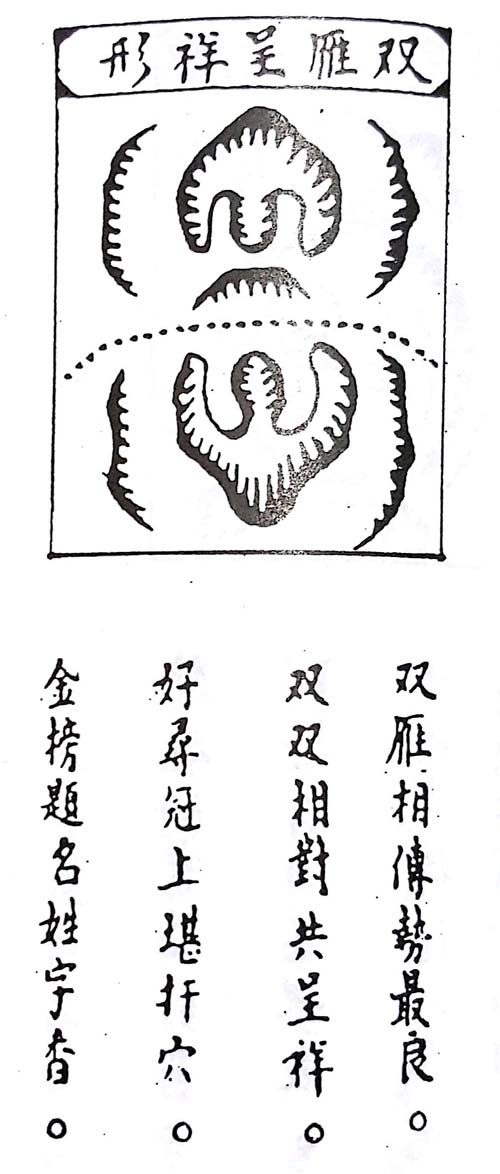 双雁呈祥形
双雁相傳勢最良。
双双相對共呈祥。
好尋冠上堪扦穴。
金榜題名姓字香。